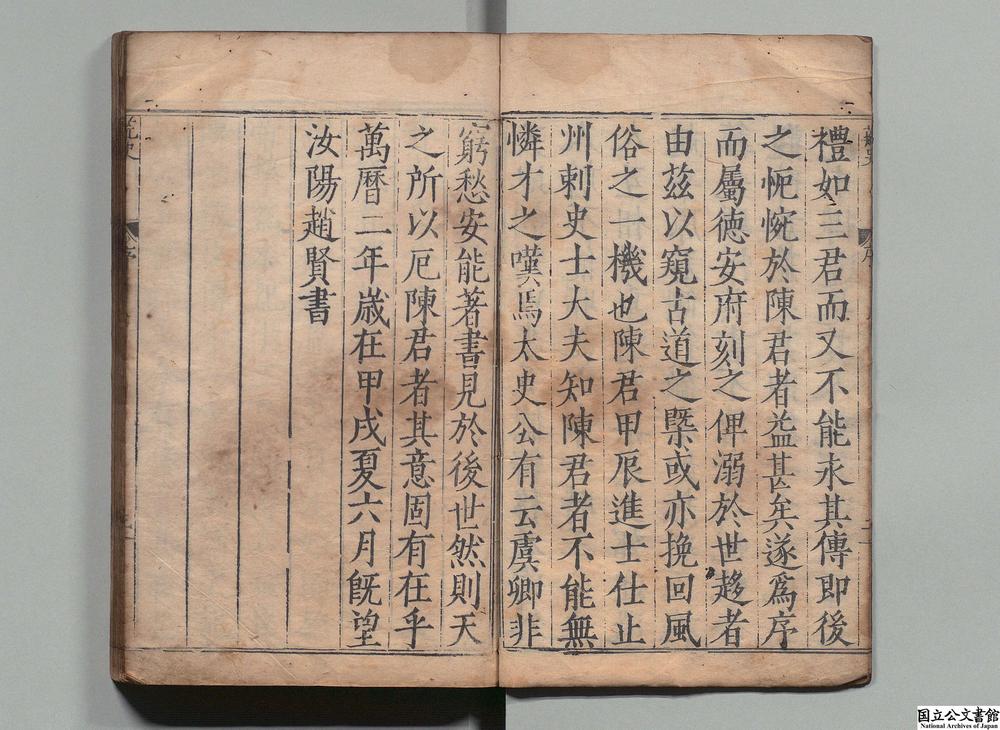 禮如三君而又不能永其傳即後
之怃惋於陳君者益甚矣遂為序
而屬德安府刻之俾溺於世趍者
由茲以窺古道之槩或亦挽回風
俗之一機也陳君甲辰進士仕止
州刺史士大夫知陳君者不能無
憐才之嘆焉太史公有云虞卿非
窮愁安能著書見於後世然則天
之所以厄陳君者其意固有在乎
萬曆二年歲在甲戌夏六月旣望
汝陽趙賢書
序
国立公文書館
National Archives of Japan